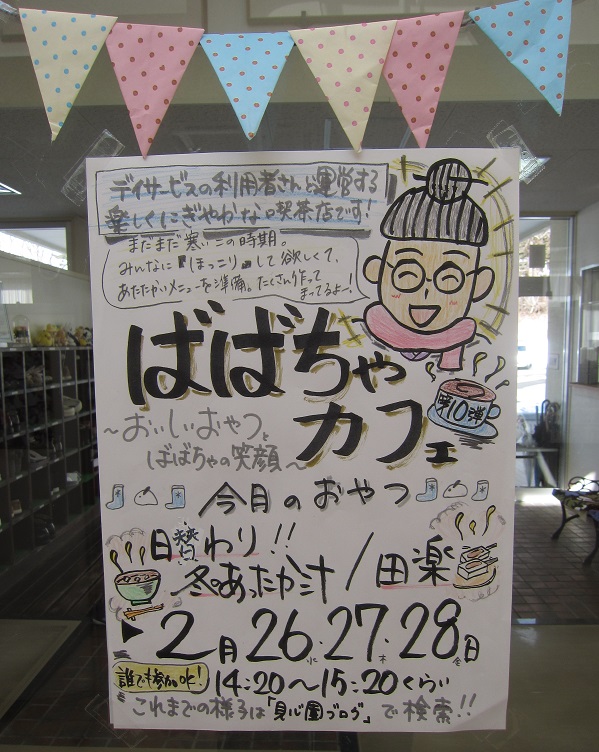 デイサービスの利用者さんと運営する
楽しくにぎやかな喫茶店です!
まだまだ寒いこの時期。
みんなに『ほっこり』して欲しくて、
あたたかいメニューを準備。たくさん作って
まってるよー!
ばばちゃ
カフェ
第10弾
～おいしいおやつと
ばばちゃの笑顔～
今月のおやつ
日替わり!!
冬のあったか汁/田楽
▶2月26・27・28日
水 木 金
誰でも参加OK!
14:20～15:20くらい
これまでの様子は「見心園ブログ」で検索!!